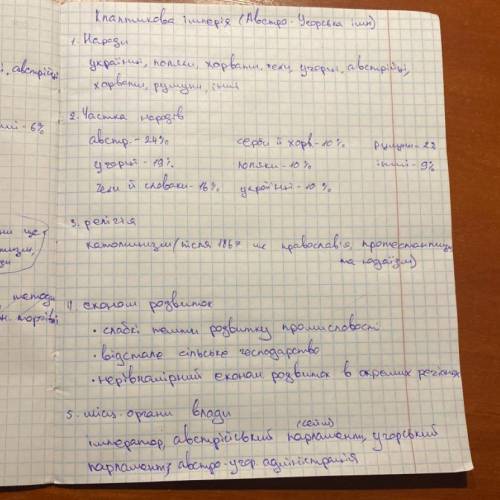 Клаптикова імперія (Австро-Угорська імп)
1. Народи
українці, поляки, хорвати, чехи, угорці, австрійці,
хорвати, румуни, інші
2. Частка народів
австр. - 24% серби й хорв. - 10% румуни - 22
угорці - 19% поляки - 10% інші - 9%
чехи й словаки - 16% українці - 10%
3. релігія
католицизм (після 1867 ще православ'я, протестантизм
та юдаїзм)
4 економ розвиток
• слабкі темпи розвитку промисловості
• відстале сільське господарство
• нерівномірний економ розвиток в окремих регіонах
5. місц. органи влади
(сейм)
імператор, австрійський парламент, угорський
парламент, австро-угор. адміністрація
, австрійці
інші - 6%